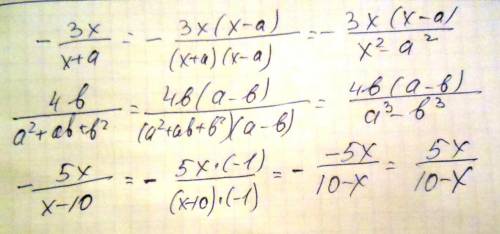 - 3x/(x+a) = - 3x(x-a)/((x+a)(x-a)) = - 3x(x-a)/(x²-a²)
4b/(a²+ab+b²) = 4b(a-b)/((a²+ab+b²)(a-b)) = 4b(a-b)/(a³-b³)
- 5x/(x-10) = - 5x·(-1)/((x-10)·(-1)) = - -5x/(10-x) = 5x/(10-x)